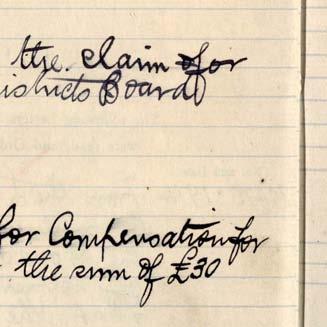 the claim for
istricts Board
for Compensation for
the sum of £30